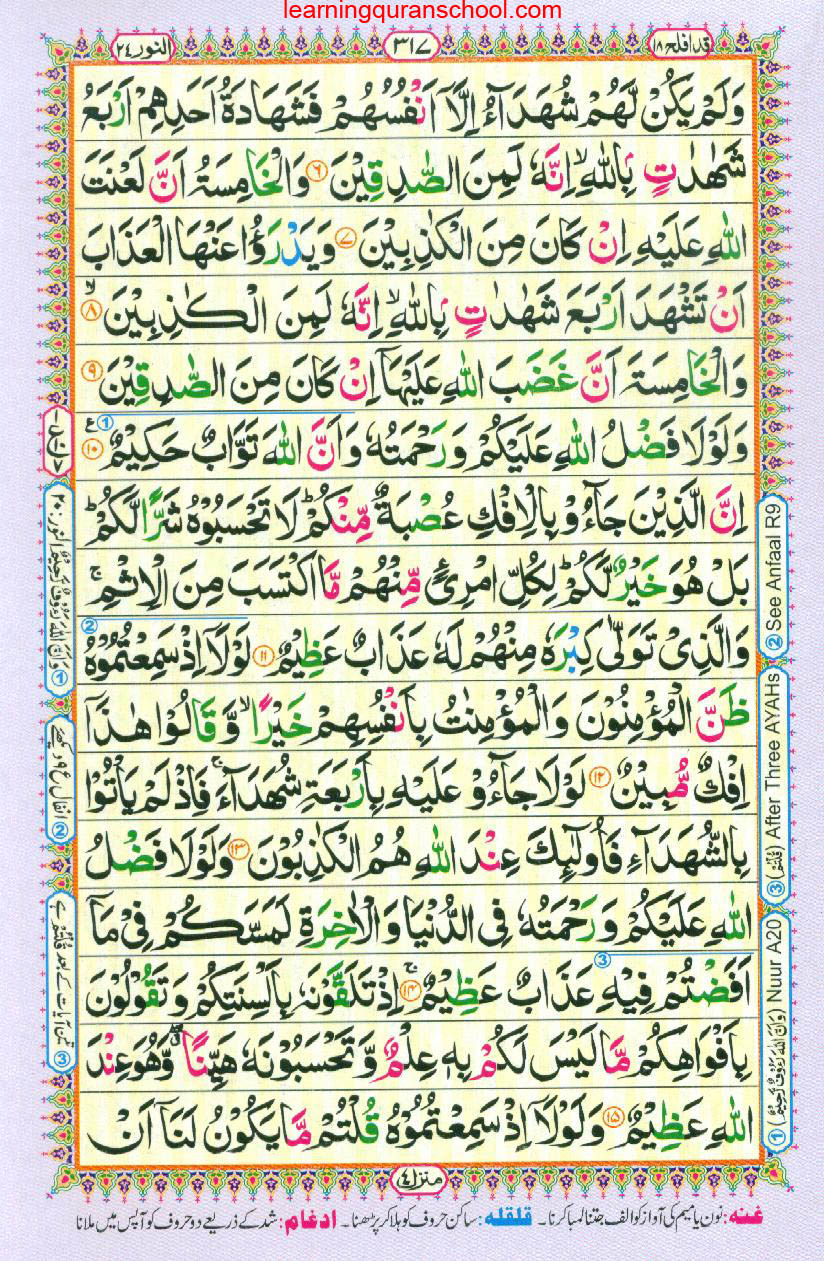 learningquranschool.com
قد افلح ١٨
٣١٧
النور ٢٤
وَلَمْ يَكُنْ لَّهُمْ شُهَدَآءُ اِلَّاۤ اَنْفُسُهُمْ فَشَهَادَةُ اَحَدِهِمْ اَرْبَعُ
شَهٰدٰتٍۭ بِاللّٰهِ ۙ اِنَّهٗ لَمِنَ الصّٰدِقِيْنَ ۶ وَالْخَامِسَةُ اَنَّ لَعْنَتَ
اللّٰهِ عَلَيْهِ اِنْ كَانَ مِنَ الْكٰذِبِيْنَ ۷ وَيَدْرَؤُا عَنْهَا الْعَذَابَ
اَنْ تَشْهَدَ اَرْبَعَ شَهٰدٰتٍۭ بِاللّٰهِ ۙ اِنَّهٗ لَمِنَ الْكٰذِبِيْنَ ۙ ۸
وَالْخَامِسَةَ اَنَّ غَضَبَ اللّٰهِ عَلَيْهَاۤ اِنْ كَانَ مِنَ الصّٰدِقِيْنَ ۹
وَلَوْلَا فَضْلُ اللّٰهِ عَلَيْكُمْ وَرَحْمَتُهٗ وَاَنَّ اللّٰهَ تَوَّابٌ حَكِيْمٌ ۱۰ ع 1
اِنَّ الَّذِيْنَ جَآءُوْ بِالْاِفْكِ عُصْبَةٌ مِّنْكُمْ ؕ لَا تَحْسَبُوْهُ شَرًّا لَّكُمْ ؕ
بَلْ هُوَ خَيْرٌ لَّكُمْ ؕ لِكُلِّ امْرِئٍ مِّنْهُمْ مَّا اكْتَسَبَ مِنَ الْاِثْمِ ۚ
وَالَّذِيْ تَوَلّٰى كِبْرَهٗ مِنْهُمْ لَهٗ عَذَابٌ عَظِيْمٌ ۱۱ لَوْلَاۤ اِذْ سَمِعْتُمُوْهُ 2
ظَنَّ الْمُؤْمِنُوْنَ وَالْمُؤْمِنٰتُ بِاَنْفُسِهِمْ خَيْرًا ۙ وَّقَالُوْا هٰذَاۤ
اِفْكٌ مُّبِيْنٌ ۱۲ لَوْلَا جَآءُوْ عَلَيْهِ بِاَرْبَعَةِ شُهَدَآءَ ۚ فَاِذْ لَمْ يَاْتُوْا
بِالشُّهَدَآءِ فَاُولٰٓئِكَ عِنْدَ اللّٰهِ هُمُ الْكٰذِبُوْنَ ۱۳ وَلَوْلَا فَضْلُ
اللّٰهِ عَلَيْكُمْ وَرَحْمَتُهٗ فِي الدُّنْيَا وَالْاٰخِرَةِ لَمَسَّكُمْ فِيْ مَاۤ
اَفَضْتُمْ فِيْهِ عَذَابٌ عَظِيْمٌ ۚۖ ۱۴ 3 اِذْ تَلَقَّوْنَهٗ بِاَلْسِنَتِكُمْ وَتَقُوْلُوْنَ
بِاَفْوَاهِكُمْ مَّا لَيْسَ لَكُمْ بِهٖ عِلْمٌ وَّتَحْسَبُوْنَهٗ هَيِّنًا ۖ وَّهُوَ عِنْدَ
اللّٰهِ عَظِيْمٌ ۱۵ وَلَوْلَاۤ اِذْ سَمِعْتُمُوْهُ قُلْتُمْ مَّا يَكُوْنُ لَنَاۤ اَنْ
منزل ٤
2 See Anfaal R9
3 (قُلْتُمْ) After Three AYAHs
1 (وَاَنَّ اللّٰهَ رَءُوْفٌ رَّحِيْمٌ) Nuur A20
1 وَاَنَّ اللّٰهَ رَءُوْفٌ رَّحِيْمٌ النور: ۲۰
2 انفال ع ۹ دیکھیے
3 تین آیات کے بعد قُلْتُمْ ہے
غنہ: نون یا میم کی آواز کو الف جتنا لمبا کرنا۔ قلقلہ: ساکن حروف کو ہلا کر پڑھنا۔ ادغام: شد کے ذریعے دو حروف کو آپس میں ملانا